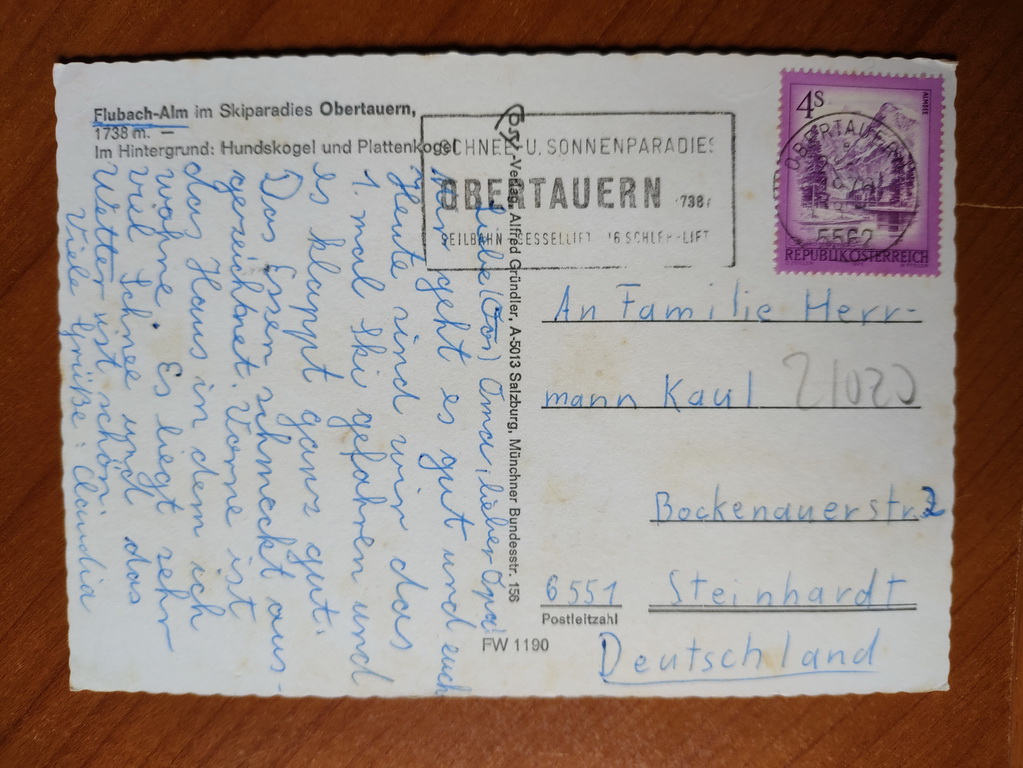 Flubach-Alm im Skiparadies Obertauern,
1738 m. —
Im Hintergrund: Hundskogel und Plattenkogel
SCHNEE- U. SONNENPARADIES
OBERTAUERN 1738
SEILBAHN SESSELLIFT 16 SCHLEPP-LIFT
4S
ALMSEE
OBERTAUERN
5562
REPUBLIK ÖSTERREICH
Liebe Oma, lieber Opa!
Mir geht es gut und euch
Heute sind wir das
1. mal Ski gefahren und
es klappt ganz gut.
Das Essen schmeckt aus-
gezeichnet. Vorne ist
das Haus in dem ich
wohne. Es liegt sehr
viel Schnee und das
Wetter ist schön.
Viele Grüße: Claudia
-Verlag, Alfred Gründler, A-5013 Salzburg, Münchner Bundesstr. 156
An Familie Herr-
mann Kaul
Bockenauerstr. 2
6551 Steinhardt
Postleitzahl
Deutschland
FW 1190